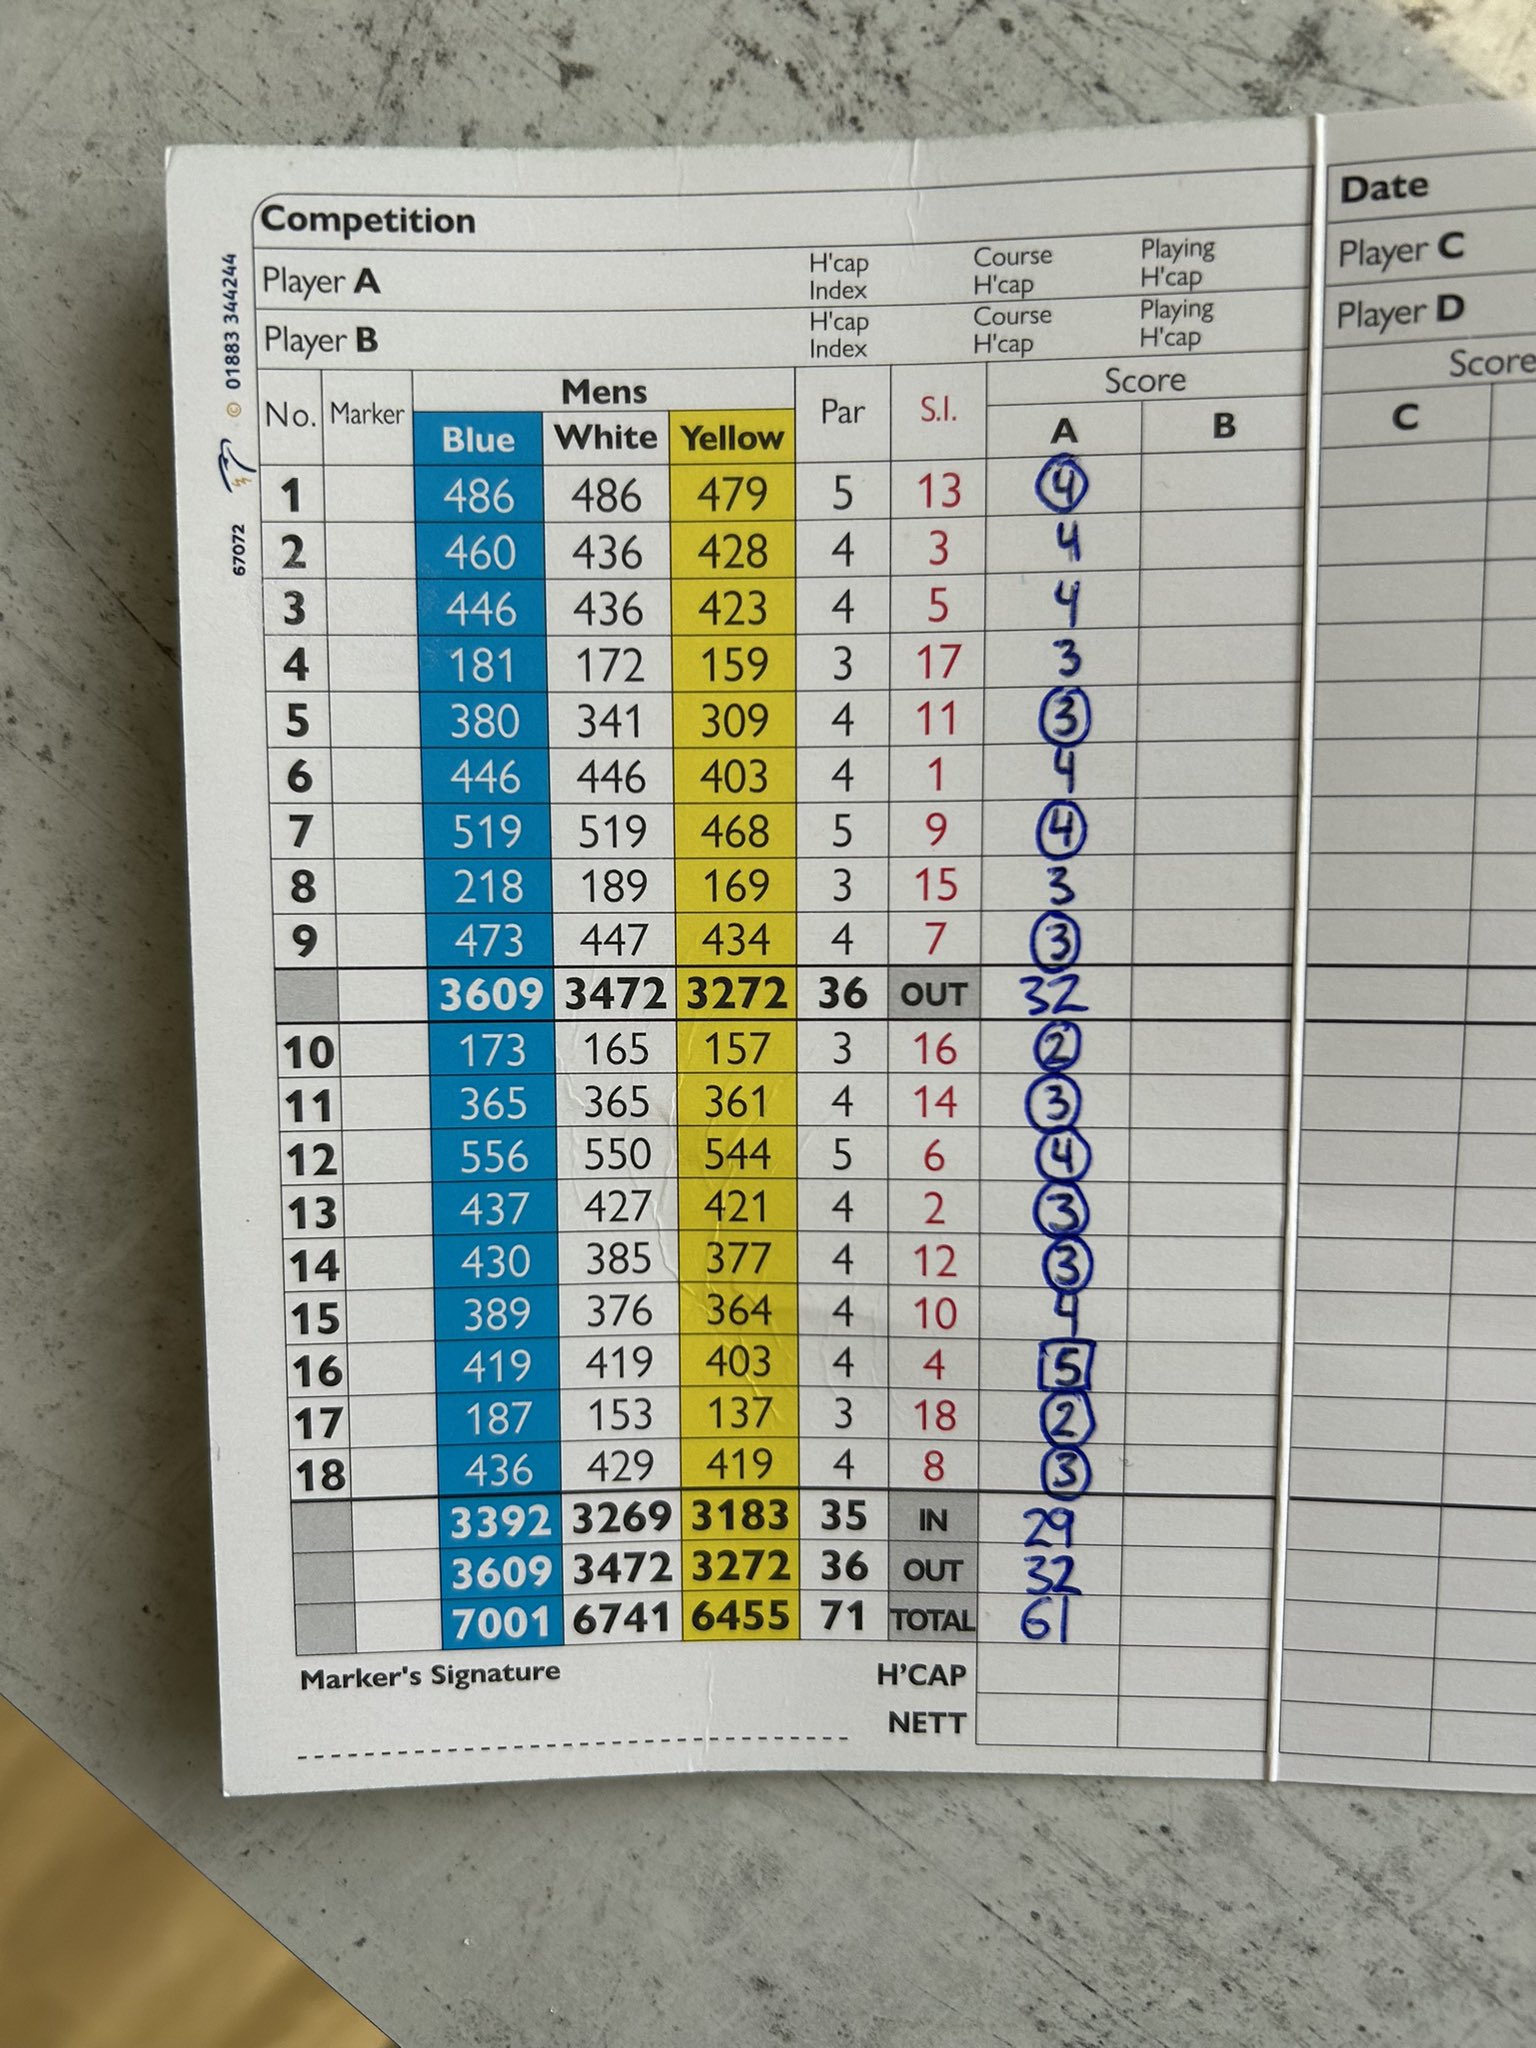 Competition
Date
Player A H'cap Index Course H'cap Playing H'cap
Player C
Player B H'cap Index Course H'cap Playing H'cap
Player D
01883 344244
67072
No. Marker Mens Par S.I. Score Score
Blue White Yellow A B C
1 486 486 479 5 13 4
2 460 436 428 4 3 4
3 446 436 423 4 5 4
4 181 172 159 3 17 3
5 380 341 309 4 11 3
6 446 446 403 4 1 4
7 519 519 468 5 9 4
8 218 189 169 3 15 3
9 473 447 434 4 7 3
3609 3472 3272 36 OUT 32
10 173 165 157 3 16 2
11 365 365 361 4 14 3
12 556 550 544 5 6 4
13 437 427 421 4 2 3
14 430 385 377 4 12 3
15 389 376 364 4 10 4
16 419 419 403 4 4 5
17 187 153 137 3 18 2
18 436 429 419 4 8 3
3392 3269 3183 35 IN 29
3609 3472 3272 36 OUT 32
7001 6741 6455 71 TOTAL 61
Marker's Signature H'CAP
NETT